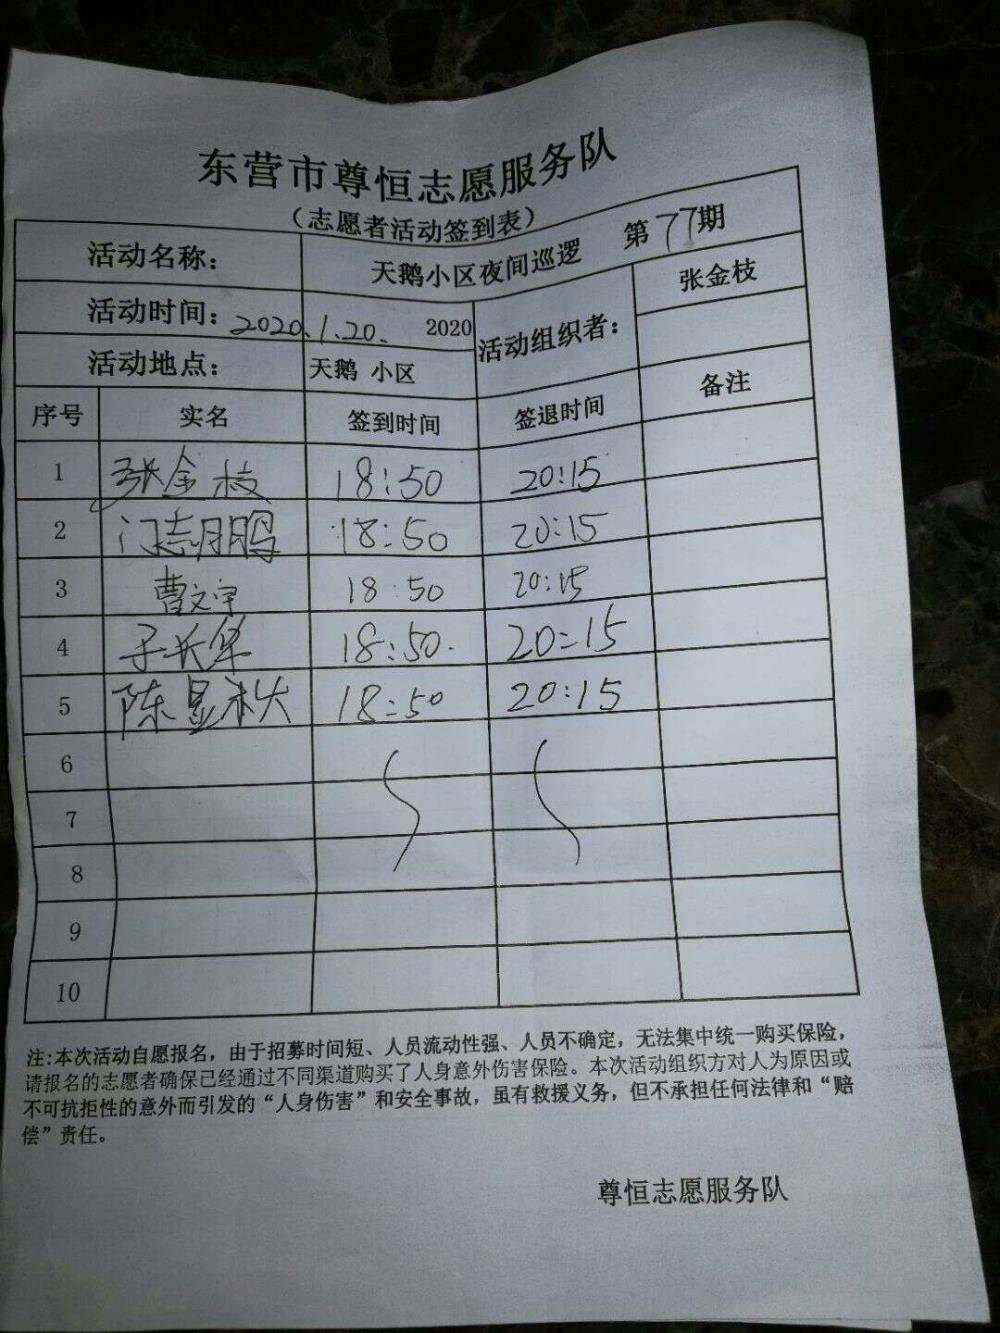 东营市尊恒志愿服务队
（志愿者活动签到表）
活动名称： 天鹅小区夜间巡逻 第77期
活动时间：2020.1.20. 2020 活动组织者： 张金枝
活动地点： 天鹅 小区
序号 实名 签到时间 签退时间 备注
1 张金枝 18:50 20:15
2 门志鹏 18:50 20:15
3 曹文宇 18:50 20:15
4 18:50. 20:15
5 陈显秋 18:50 20:15
6
7
8
9
10
注:本次活动自愿报名，由于招募时间短、人员流动性强、人员不确定，无法集中统一购买保险，
请报名的志愿者确保已经通过不同渠道购买了人身意外伤害保险。本次活动组织方对人为原因或
不可抗拒性的意外而引发的“人身伤害”和安全事故，虽有救援义务，但不承担任何法律和“赔
偿”责任。
尊恒志愿服务队